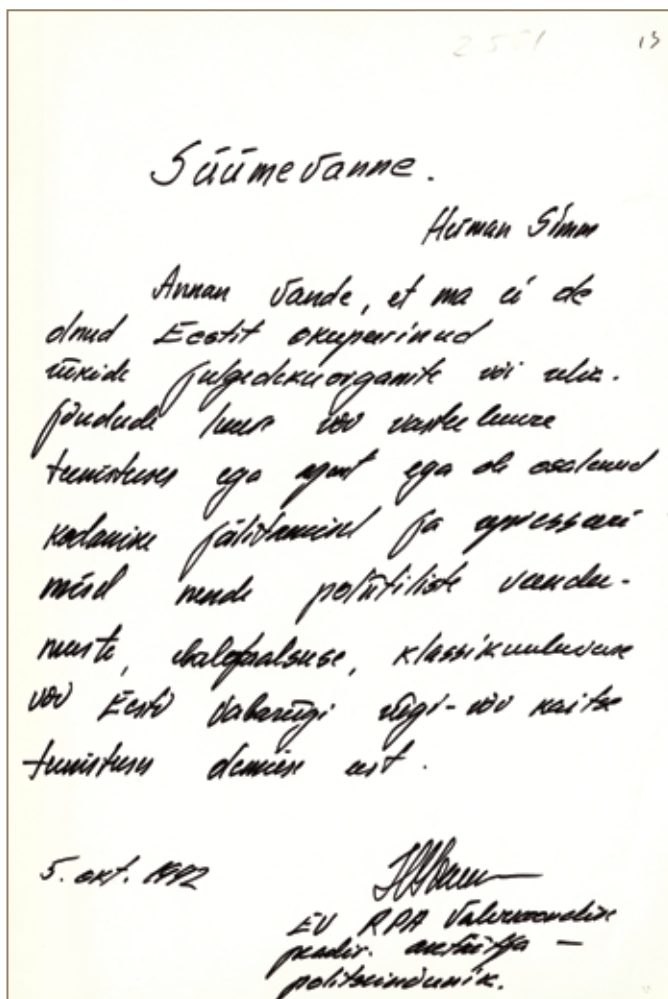 2551 13
Süümevanne.
Herman Simm
Annan vande, et ma ei ole
olnud Eestit okupeerinud
riikide julgeolekuorganite või relva-
jõudude luure või vastuluure
teenistuses ega agent ega ole osalenud
kodanike jälitamisel ja represseeri
misel nende poliitiliste veendu-
muste, ebalojaalsuse, klassikuuluvuse
või Eesti Vabariigi riigi- või kaitse
teenistuses olemise eest.
5. okt. 1992
EV RPA Valveosakonna
peadir. asetäitja —
politseinõunik.